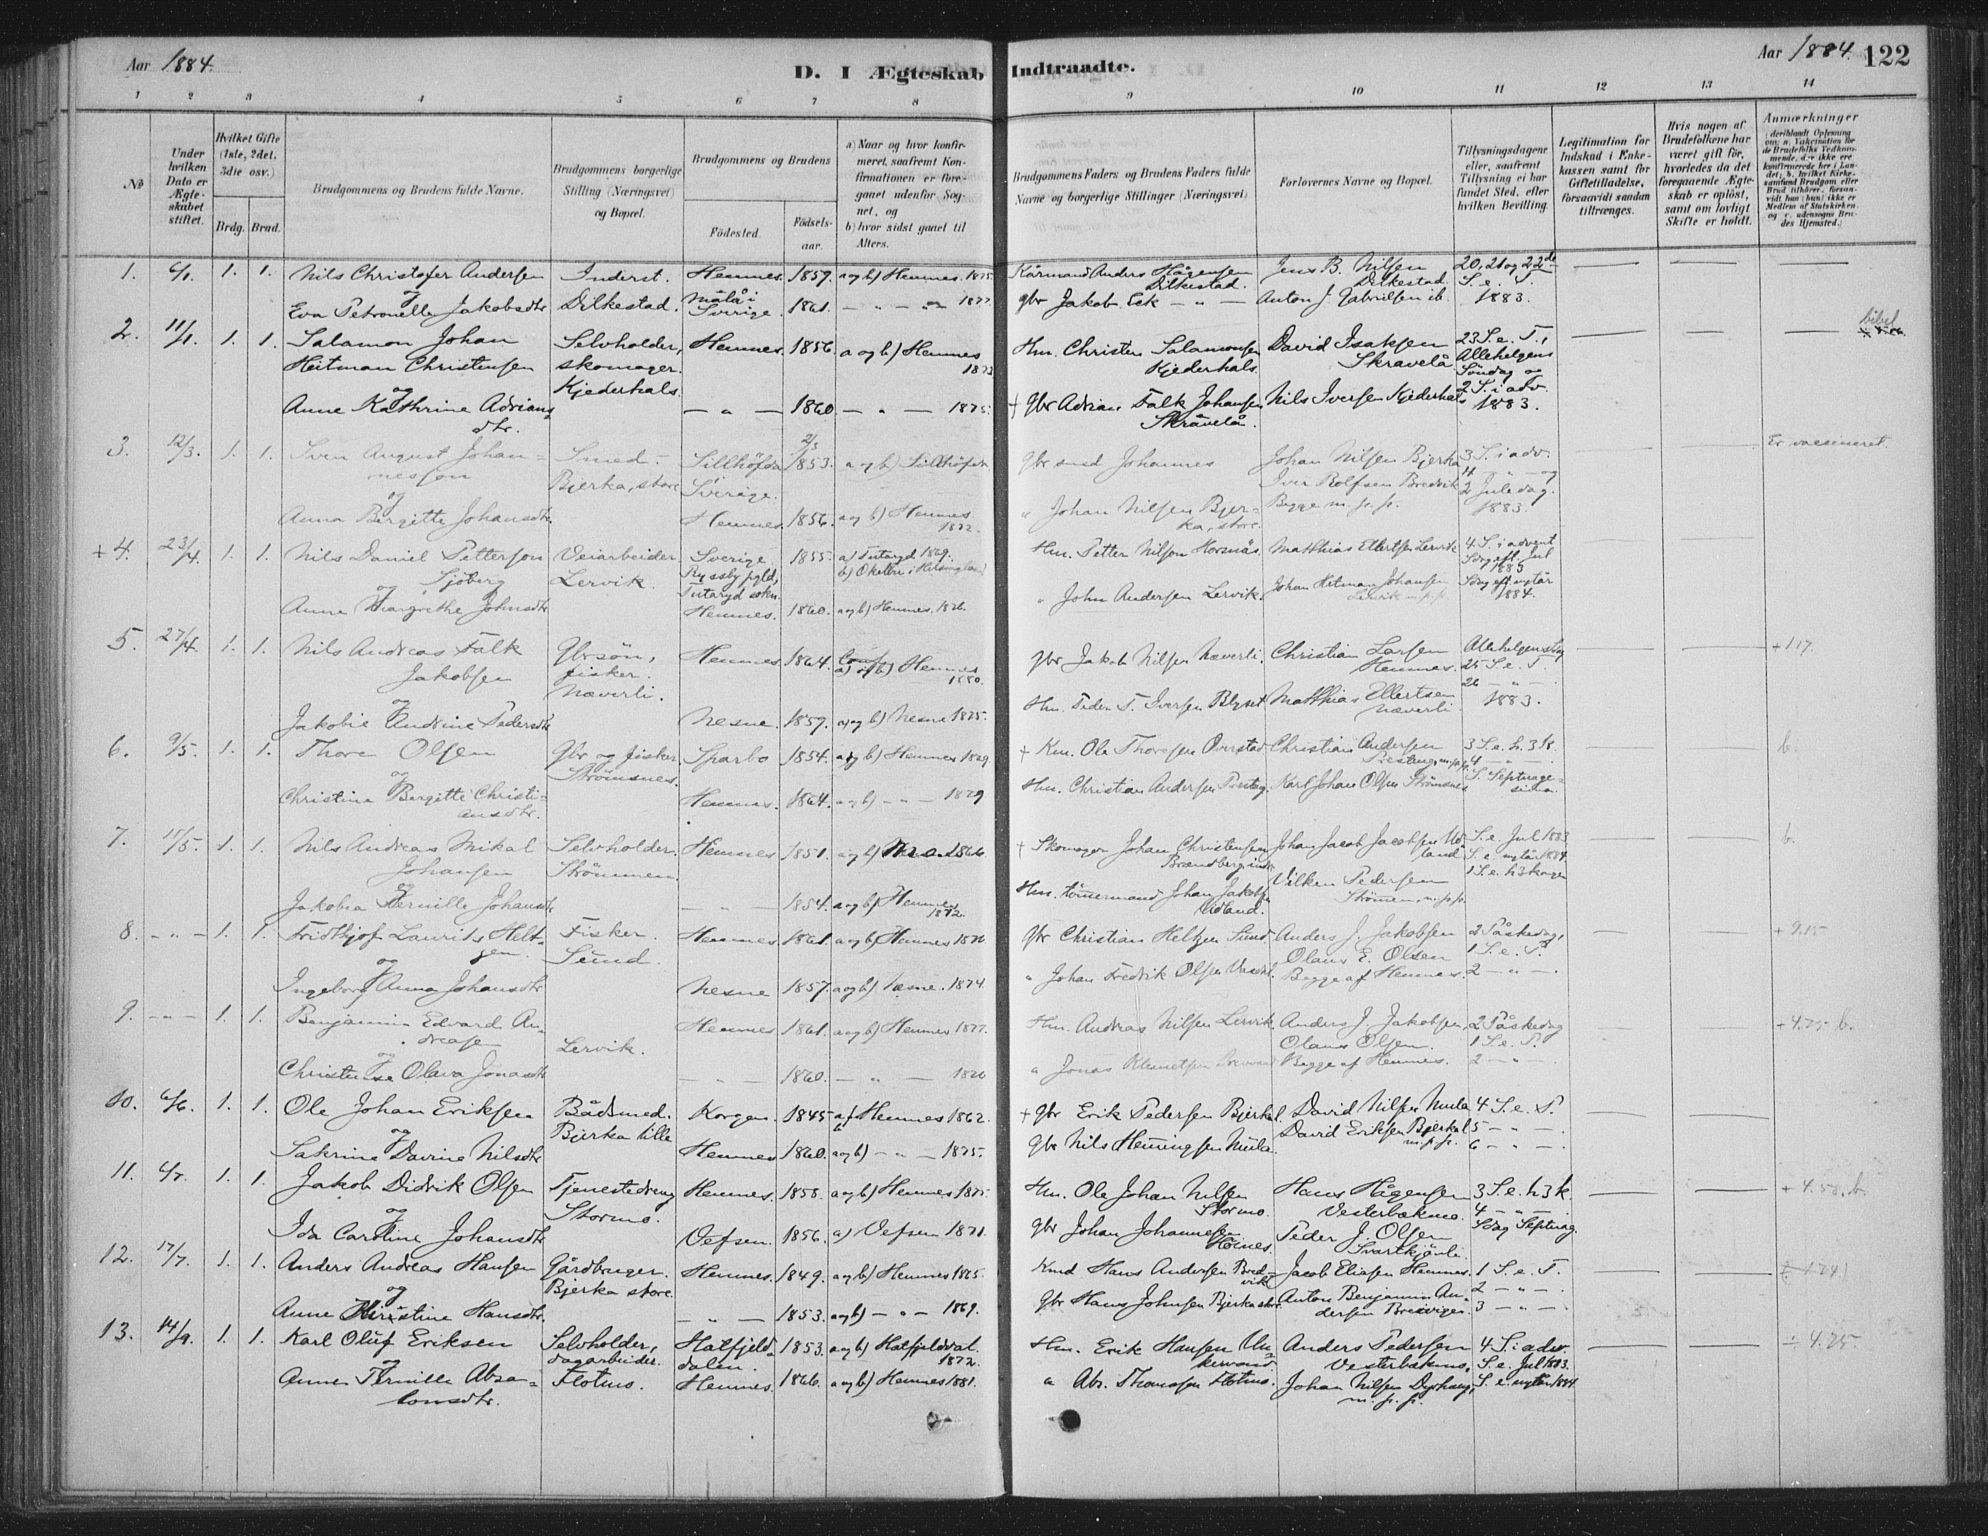 Aar 1884.
D. I Ægteskab Indtraadte.
Aar 1884. 122
1 2 3 4 5 6 7 8 9 10 11 12 13 14
No
Under hvilken Dato er Ægteskabet stiftet.
Hvilket Gifte (1ste, 2det, 3die osv.)
Brdg. Brud.
Brudgommens og Brudens fulde Navne.
Brudgommens borgerlige Stilling (Næringsvei) og Bopæl.
Brudgommens og Brudens
Födested. Födsels-aar.
a) Naar og hvor konfirmeret, saafremt Konfirmationen er foregaaet udenfor Sognet, og
b) hvor sidst gaaet til Alters.
Brudgommens Faders og Brudens Faders fulde Navne og borgerlige Stillinger (Næringsvei)
Forlovernes Navne og Bopæl.
Tillysningsdagene eller, saafremt Tillysning ei har fundet Sted, efter hvilken Bevilling.
Legitimation for Indskud i Enkekassen samt for Giftetilladelse, forsaavidt saadan tiltrænges.
Hvis nogen af Brudefolkene har været gift för, hvorledes da det foregaaende Ægteskab er oplöst, samt om lovligt Skifte er holdt.
Anmærkninger
1. 6/1. 1. 1. Nils Christofer Andersen Inderst. Hemnes. 1859. a og b) Hemnes. 1875. Kårmand Anders Hågensen Jens B. Nilsen 20, 21 og 22de
og Dilkestad. Dilkestad S. e. T.
Eva Petronella Jakobsdtr Dilkestad. Målå i Sverige. 1861. — " — 1877. gbr Jakob Eek — " — Anton J. Gabrielsen ib. 1883.
2. 11/1. 1. 1. Salamon Johan Selvholder, Hemnes. 1856. a og b) Hemnes Hm. Christen Salamonsen David Isaksen 23 S. e. T., bibel
Heitman Christensen skomager. 1873 Kjederhals. Skravelå Allehelgens
og Kjederhals. Söndag og
Anne Kathrine Adrians- — " — 1860 — " — 1875. + gbr Adrian Falk Johansen Nils Iversen Kjederhals 2 S. i adv.
dtr. Skravelå. 1883.
3. 12/3. 1. 1. Sven August Johan- Smed. Sillhöfda 2/3 1853. a og b) Sillhöfda gbr smed Johannes Johan Nilsen Bjerka 3 S. i adv. Er vaccineret.
nesson Bjerka, store Sverige. Iver Rolfsen Bredvik 4 — " — og
og Begge m. p. p. 2 Juledag.
Anna Bergitte Johansdtr. Hemnes. 1856. a og b) Hemnes. 1872. " Johan Nilsen Bjerka, store. 1883.
+ 4. 23/4. 1. 1. Nils Daniel Petterson Veiarbeider Sverige 1855. a) Tutaryd 1869. Hm. Petter Nilson Horsnäs. Matthias Ellertsen Lervik 4 S. i advent
Sjöberg Lervik. Ryssby pgld, b) Okelbo i Helsingland Sdag eft. Jul
og Tutaryd sokn. 1883
Anne Margrethe Johnsdtr Hemnes. 1860. a og b) Hemnes. 1876. " John Andersen Lervik. Johan Hetman Johansen Sdag eft nytår
Lervik m. p. p. 1884.
5. 27/4. 1. 1. Nils Andreas Falk Gbrsön, Hemnes 1864. Conf. gbr Jakob Nilsen Næverli. Christian Larsen Allehelgens Sdag + 117.
Jakobsen fisker. a) og b) Hemnes 1880. Hemnes. 25 S. e. T.
og Næverli. 26 — " —
Jakobie Andrine Pedersdtr Nesne. 1859. a og b) Nesne 1875. Hm. Peder T. Iversen Matthias Ellertsen Næverli. 1883.
6. 9/5. 1. 1. Thore Olsen Gbr og fisker Sparbo 1854. a og b) Hemnes 1869 + Km. Ole Thoresen Overstad Christian Andersen 3 S. e. h. 3 K. b.
og Strömsnes. m. p. p. 4 — " —
Christina Bergitte Christi- Hemnes. 1864. a og b) — " — 1879 Hm. Christian Andersen Karl Johan Olsen Strömsnes S. Septuage-
ansdtr. sima
7. 11/5. 1. 1. Nils Andreas Mikal Selvholder. Hemnes 1851. a og b) 1866 + Skomager Johan Christensen Johan Jacob Jacobsen Ud- S. e. Jul 1883 b.
Johansen Strömmen. land. S. e. nytår 1884.
og Vilken Pedersen 1 S. e. h 3 konger
Jakobea Pernille Johansdtr — " — 1854. a og b) Hemnes 1872. Hm. tömmermand Johan Jakobsen Udland. Strömen, m. p. p.
8. — " — 1. 1. Fridthjof Laurits Helt- Fisker. Hemnes 1861. a og b) Hemnes 1876 gbr Christian Heltzen Sund Anders J. Jakobsen 2 Påskedag, + 9.15
zen. Sund. Olaus E. Olsen 1 S. e. P.
og
Ingeborg Anna Johansdtr Nesne 1857. a og b) Næsne. 1874. " Johan Fredrik Olsen Begge af Hemnes. 2 — " —
9. — " — 1. 1. Benjamin Edvard An- Hemnes 1861. a og b) Hemnes 1877. Hm. Andreas Nilsen Lervik Anders J. Jakobsen, 2 Påskedag + 4.75 b.
dreasen Lervik. Olaus Olsen. 1 S. e. P.
og
Christense Olava Jonasdtr — " — 1860. — " — 1876 " Jonas Klemetsen Begge af Hemnes. 2 — " —
10. 6/6. 1. 1. Ole Johan Eriksen Bådsmed. Korgen. 1845 a) Hemnes 1862. + gbr Erik Pedersen Bjerkal. David Nilsen Mula 4 S. e. P.
og Bjerka lille David Eriksen Bjerkal 5 — " —
Sakrine Davine Nilsdtr Hemnes 1860. a og b) — " — 1875. gbr Nils Henningsen Mula. m. p. p. 6 — " —
11. 6/7. 1. 1. Jakob Didrik Olsen Tjenestedreng Hemnes. 1858. a og b) Hemnes 1875. Hm. Ole Johan Nilsen Hans Hågensen 3 S. e. h 3 k. + 4.58. b.
og Stormo. Stormo. Vesterbækmo. 4 — " —
Ida Caroline Johansdtr Vefsen. 1856. a) Vefsen 1871. gbr Johan Johannesen Peder J. Olsen Sdag Septuag.
12. 17/7. 1. 1. Anders Andreas Hansen Gårdbruger. Hemnes. 1849. a og b) Hemnes 1865. Kmd Hans Andersen Bredvik Jacob Eliasen Hemnes. 1 S. e. T.
og Bjerka store. 2 — " —
Anne Kristine Hansdtr. — " — 1853. a og b) — " — 1869. gbr Hans Johnsen Bjerka stor Anton Benjamin Andersen Bredvigen 3 — " —
13. 14/9. 1. 1. Karl Oluf Eriksen Selvholder, Hatfjeld- 1853. a og b) Hatfjelddal. Hm. Erik Hansen Un- Anders Pedersen 4 S. i adv. + 4.75.
og dagarbeider. dalen. 1872. kervand. Vesterbækmo. S. e. Jul 1883.
Anne Pernille Absa- Flotmo. Hemnes 1866. a og b) Hemnes 1881. " Abs. Thomsen Flotmo. Johan Nilsen S. e. nytår 1884.
lonsdtr. m. p. p.